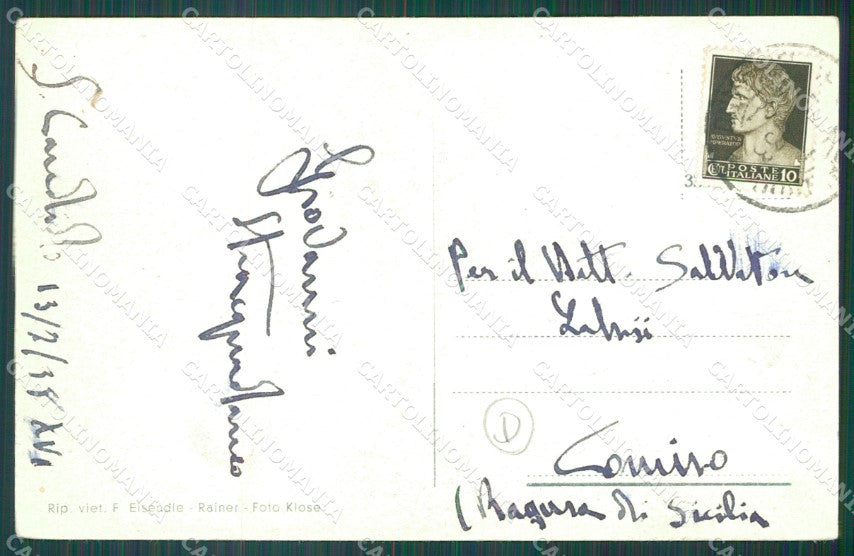 S. Candido 13/7/38 XVI
Giovanni
AVGVSTVS
IMPERATOR
POSTE
ITALIANE 10
Per il Dott. Salvatore
Comiso
(Ragusa di Sicilia
D
Rip. viet. F. Eisendle - Rainer - Foto Klose
CARTOLINOMANIA